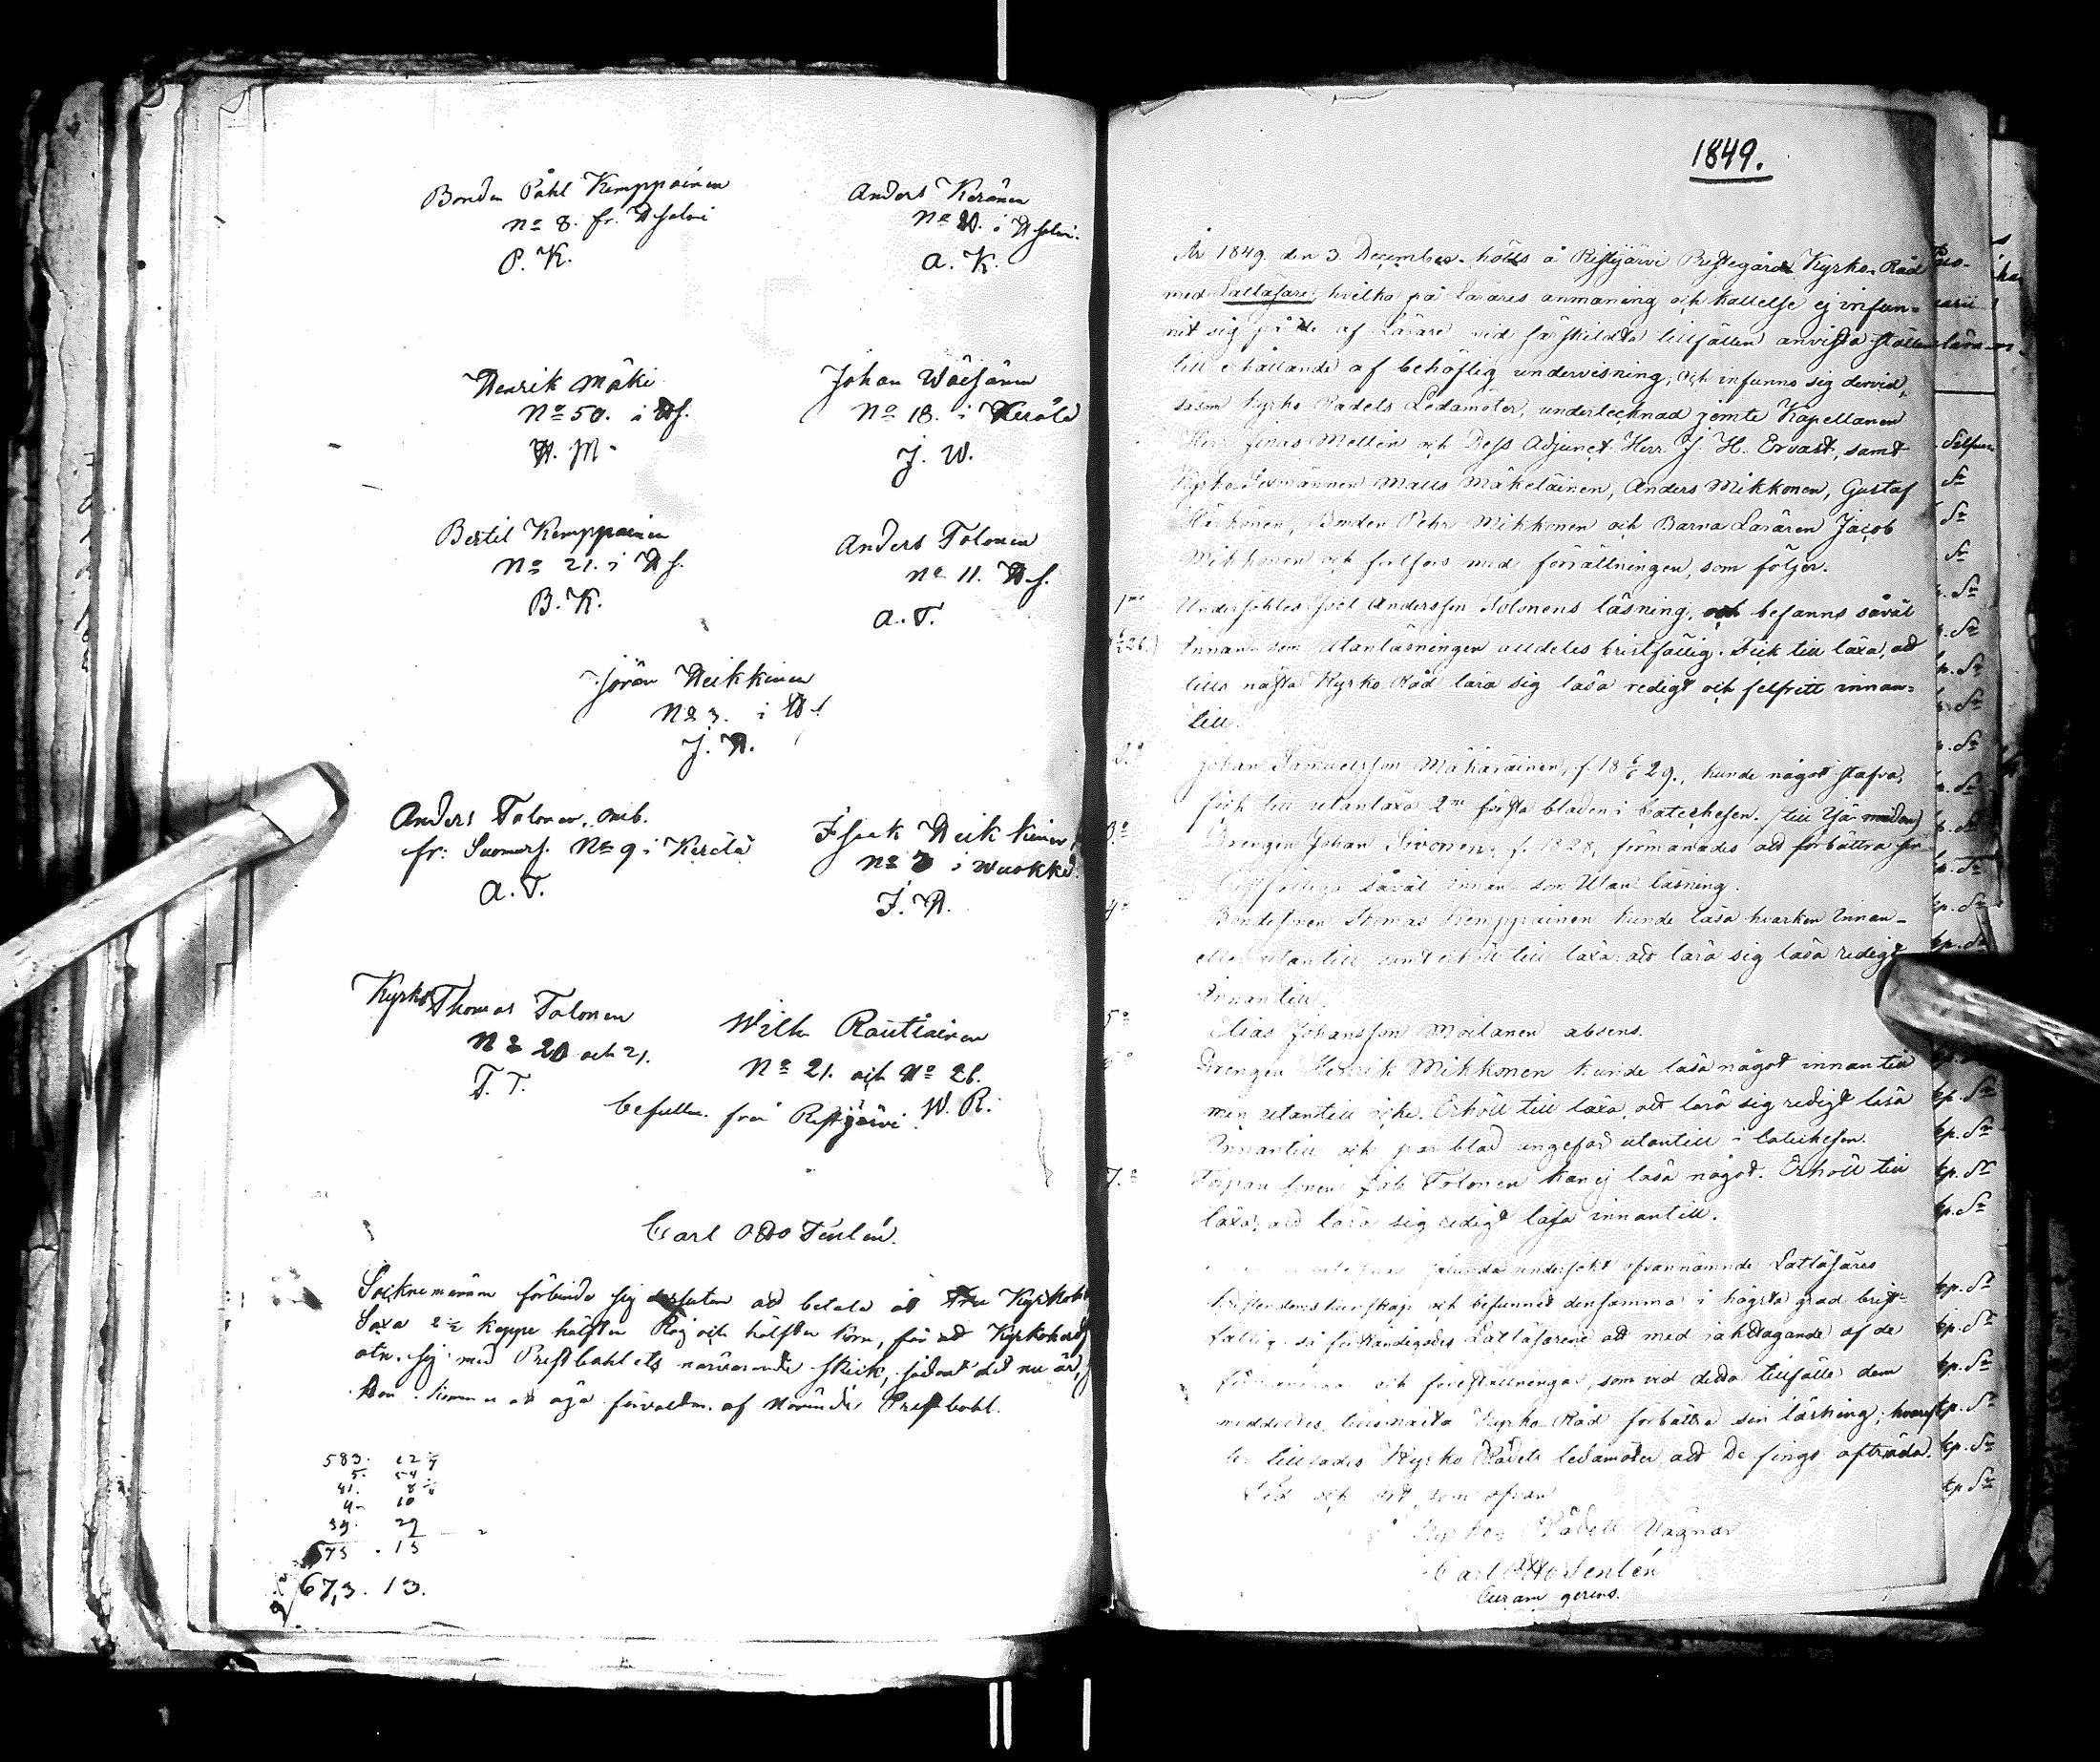 Bonden Påhl Kemppainen
No 8. fr. Hsalmi
P. K.
Anders Keränen
No 20. i Hsalmi.
A. K.
Henrik Mäki
No 50. i Hs.
H. M.
Johan Wäisänen
No 18. i Kerälä
J. W.
Bertil Kemppainen
No 21. i Hs.
B. K.
Anders Tolonen
No 11. Hs.
A. T.
Jöran Heikkinen
No 3. i Hs.
J. H.
Anders Tolonen, omb.
fr: Suomus. No 9 i Kerälä
A. T.
Isaak Heikkinen
No 7 i Wuokki.
I. H.
Kyrkov. Thomas Tolonen
No 20 och 21.
T. T.
Wilh. Rautiainen
No 21. och No 26.
W. R.
befullm. från Ristijärvi.
Carl Otto Tenlén.
Socknemännen förbinda sig dessutom att betala åt Fru Kyrkoh
Saxa 2 1/2 kappe hälften Råg och hälften Korn, för att Kyrkoherd
åtn. sig med Prestbohlets närvarande skick, sådant det nu är,
Hon kommer att äga förvaltn. af Prestbohl.
583. 12
5. 54
41. 8
4. 10
39. 29
673 . 13
673. 13.
1849.
År 1849 den 3 December hölds å Ristijärvi Prestegård Kyrko-Råd
med Lättläsare, hvilka på Lärares anmaning och kallelse ej infun-
nit sig på de af Lärare vid särskildta tillfällen anvista ställen
till erhållande af behöflig undervisning; Och infunno sig dervid,
såsom Kyrko Rådets Ledamöter, undertecknad jemte Kapellanen
Herr Jonas Mellin och Dess Adjunct Herr J. H. Ervast, samt
Kyrko Sexmännen Matts Mäkeläinen, Anders Mikkonen, Gustaf
Härkönen, Bonden Pehr Mikkonen och Barna Läraren Jacob
Mikkonen och fortfors med förrättningen, som följer.
1mo Undersöktes Joel Andersson Tolonens läsning, och befanns såväl
Innan- som Utanläsningen alldeles bristfällig. Fick till läxa, att
tills nästa Kyrko Råd lära sig läsa redigt och felfritt innan-
till.
2o Johan Samuelsson Mäkäräinen, f. 18 29., kunde något stafva,
fick till utanläxa 2ne första bladen i Catechesen.
3o Drengen Johan Sivonen, f. 1828, förmanades att förbättra sin
bristfälliga såväl Innan- som Utanläsning.
4o Bondesonen Thomas Kemppainen kunde läsa hvarken Innan-
eller utantill samt erhöll till läxa att lära sig läsa redigt
Innantill.
5o Elias Johansson Moilanen absens.
6o Drengen Henrik Mikkonen kunde läsa något innantill
men utantill icke. Erhöll till läxa, att lära sig redigt läsa
Innantill och par blad ungefär utantill i Catechesen.
7o Torpare sonen Job Tolonen kan ej läsa något. Erhöll till
läxa, att lära sig redigt läsa innantill.
sålunda undersökt ofvannämnde Lattläsares
kristendoms kunskap och befunnit densamma i högsta grad brist-
fällig, så förständigades Lattläsarene att med iakttagande af de
förmaningar och föreställningar, som vid detta tillfälle dem
meddeltes, tills nästa Kyrko Råd förbättra sin läsning; hvaref-
ter tillsades Kyrko Rådets ledamöter, att De finge afträda.
År och ort, som ofvan
På Kyrko Rådets Vägnar
Carl Otto Tenlén
Curam gerens.